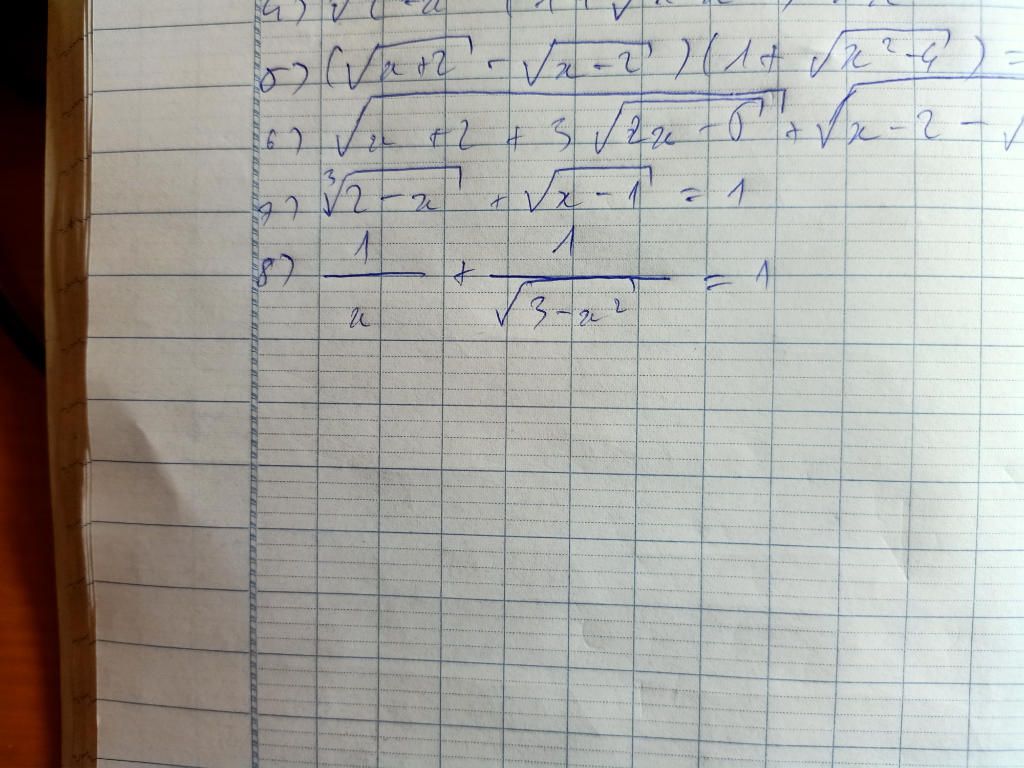 5) (√(x+2) - √(x-2))(1 + √(x²-4)) =
6) √(x+2 + 3√(2x-5)) + √(x-2-√
7) ∛(2-x) + √(x-1) = 1
8) 1/x + 1/√(3-x²) = 1